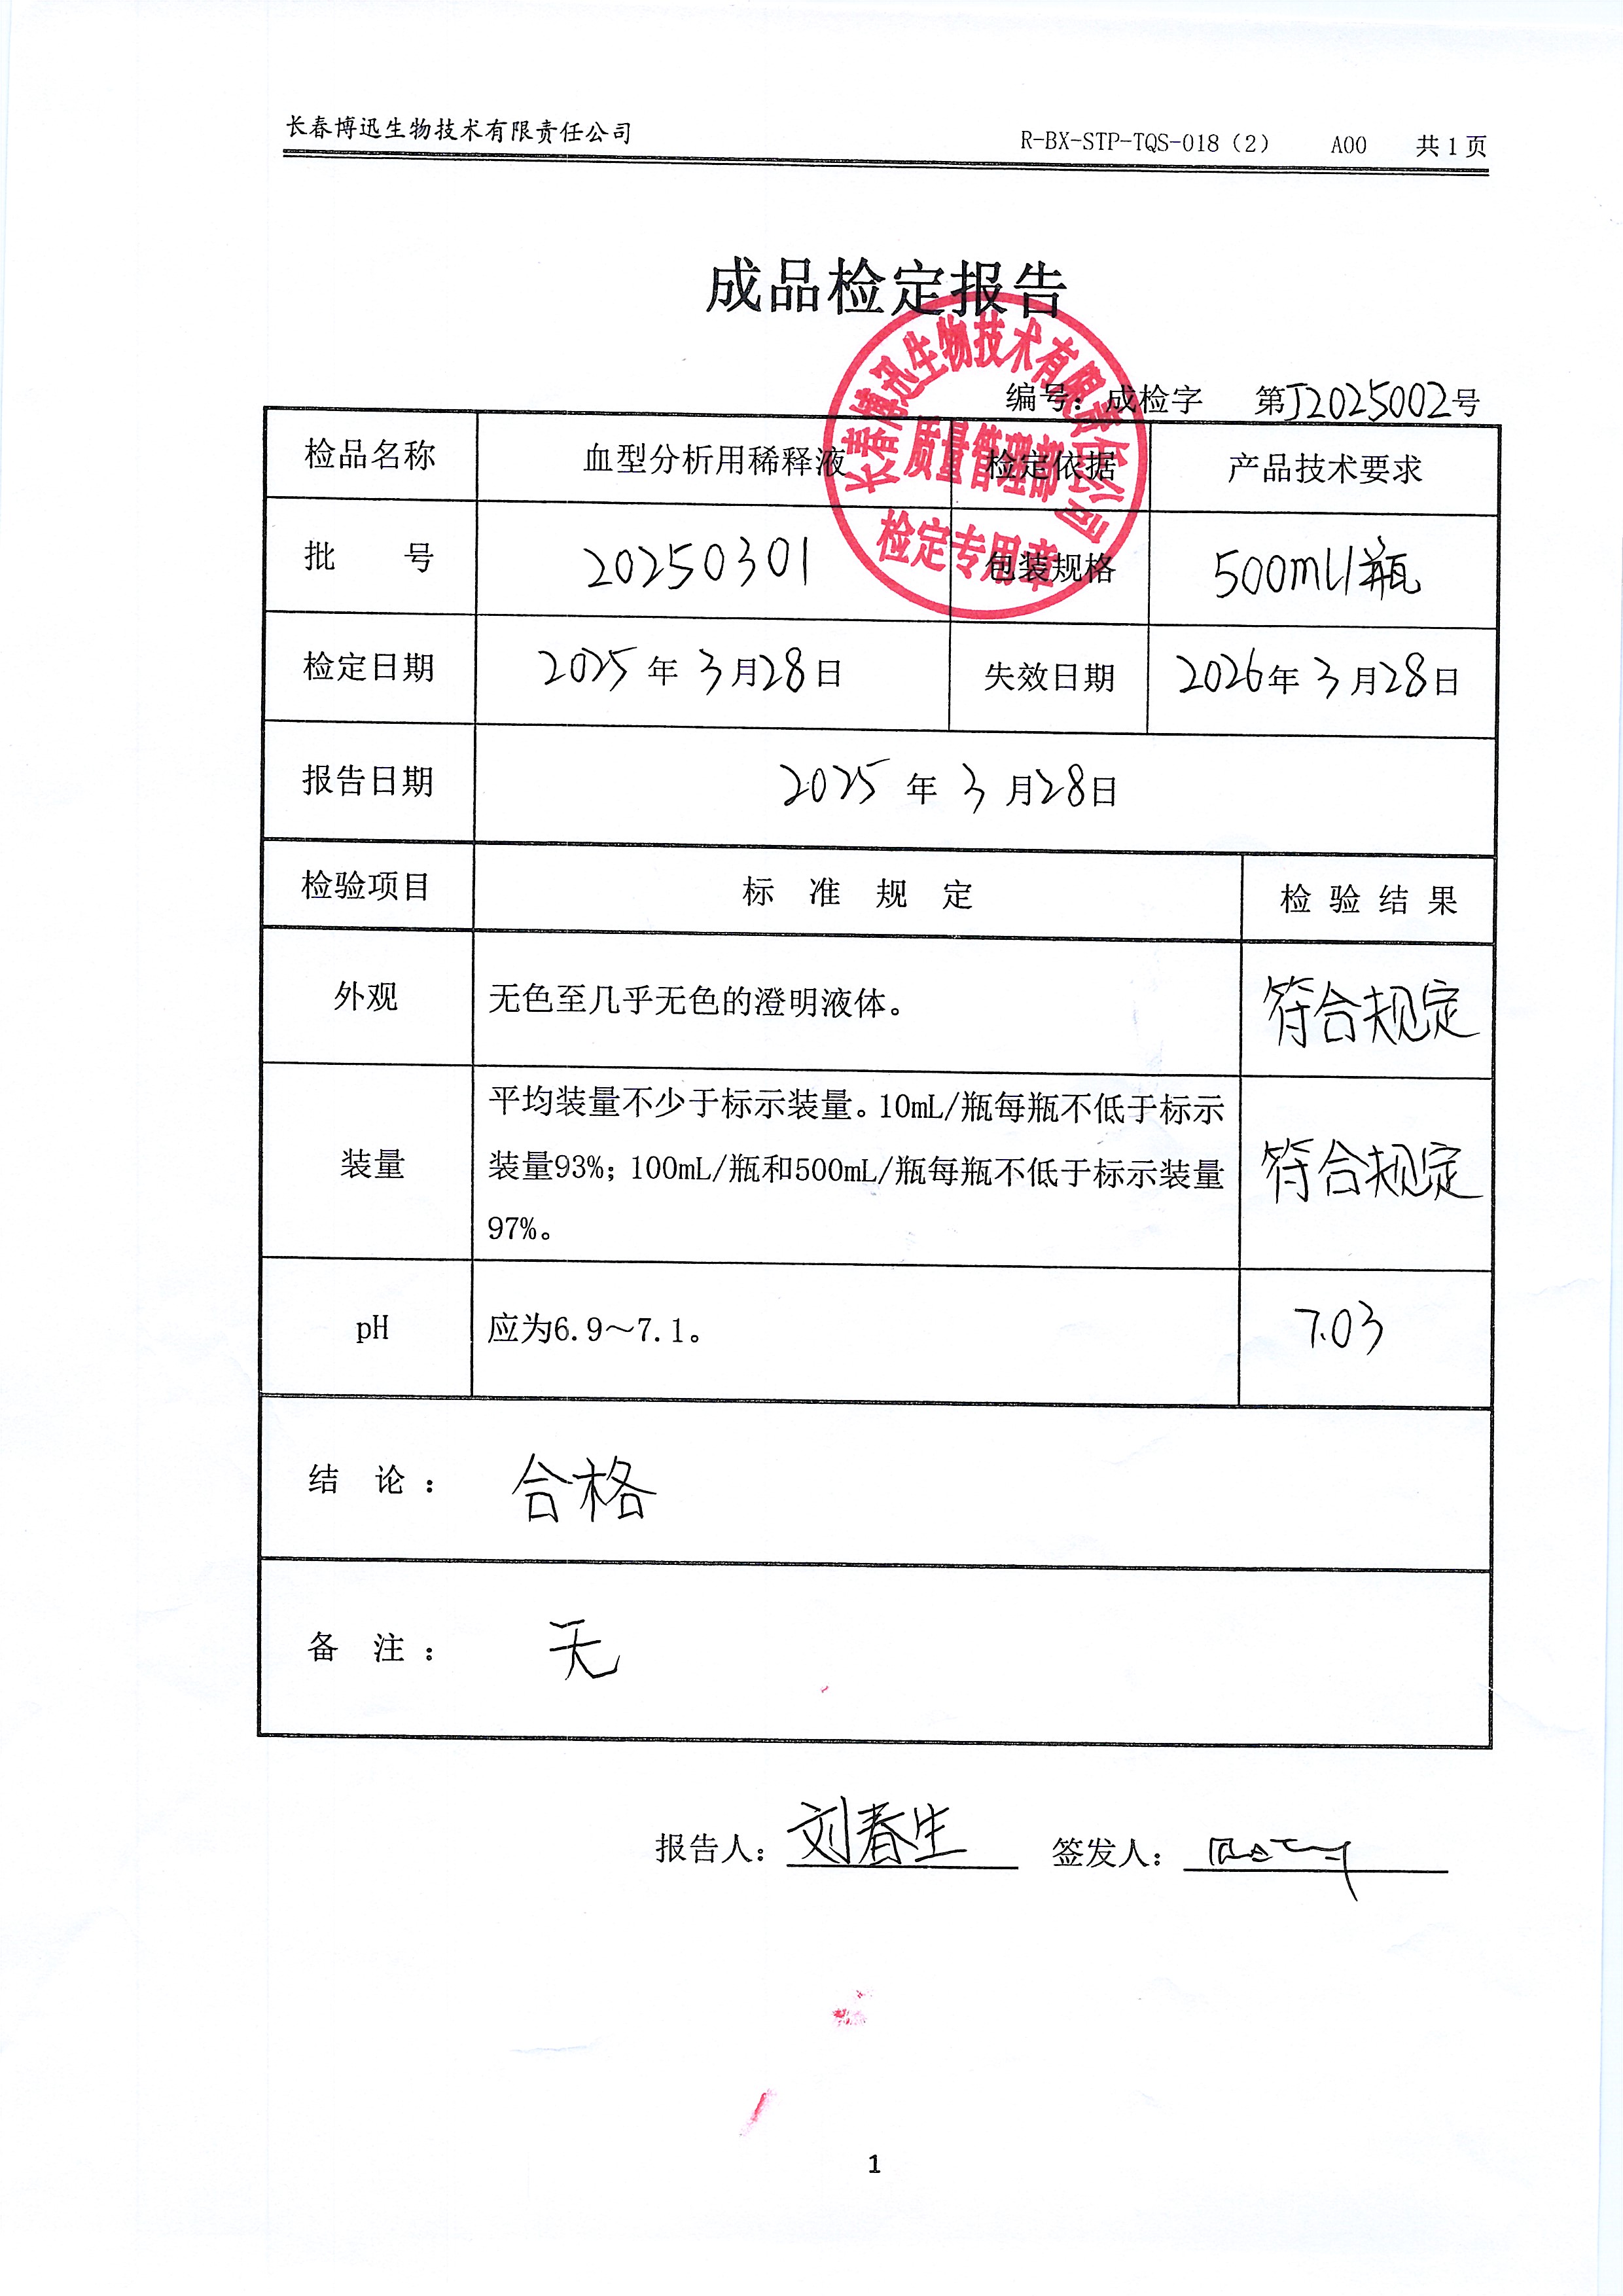 长春博迅生物技术有限责任公司 R-BX-STP-TQS-018（2） A00 共1页
成品检定报告
长春博迅生物技术有限责任公司
质量管理部
检定专用章
编号：成检字 第J2025002号
检品名称 血型分析用稀释液 检定依据 产品技术要求
批 号 20250301 包装规格 500ml/瓶
检定日期 2025年3月28日 失效日期 2026年3月28日
报告日期 2025年3月28日
检验项目 标准规定 检验结果
外观 无色至几乎无色的澄明液体。 符合规定
装量 平均装量不少于标示装量。10mL/瓶每瓶不低于标示
装量93%；100mL/瓶和500mL/瓶每瓶不低于标示装量
97%。
符合规定
pH 应为6.9～7.1。 7.03
结 论： 合格
备 注： 无
报告人：刘春生 签发人：
1